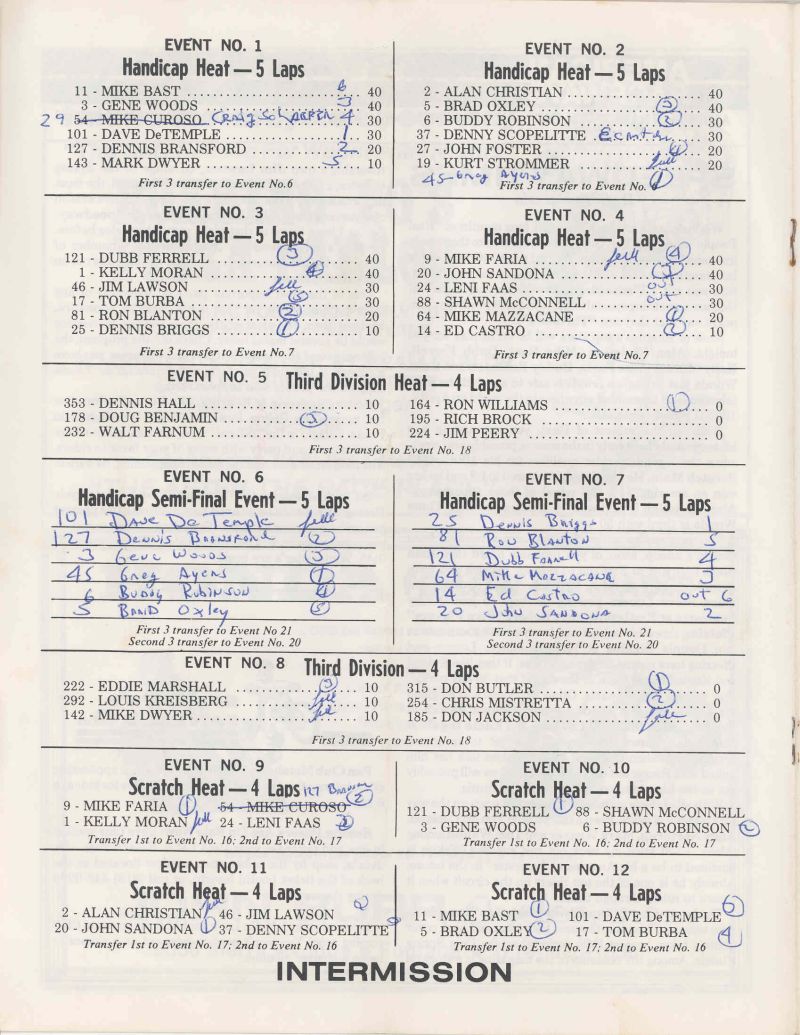 EVENT NO. 1
Handicap Heat — 5 Laps
11 - MIKE BAST .......... 6 40
3 - GENE WOODS .......... 3 40
29 54 - MIKE CUROSO 4 30
101 - DAVE DeTEMPLE .......... 1 30
127 - DENNIS BRANSFORD .......... 2 20
143 - MARK DWYER .......... 5 10
First 3 transfer to Event No.6
EVENT NO. 2
Handicap Heat — 5 Laps
2 - ALAN CHRISTIAN .......... 40
5 - BRAD OXLEY .......... 3 40
6 - BUDDY ROBINSON .......... 2 30
37 - DENNY SCOPELITTE 30
27 - JOHN FOSTER .......... 4 20
19 - KURT STROMMER .......... fell 20
45 - Greg Ayers 1
First 3 transfer to Event No. 6
EVENT NO. 3
Handicap Heat — 5 Laps
121 - DUBB FERRELL .......... 3 40
1 - KELLY MORAN .......... 4 40
46 - JIM LAWSON .......... fell 30
17 - TOM BURBA .......... 5 30
81 - RON BLANTON .......... 2 20
25 - DENNIS BRIGGS .......... 1 10
First 3 transfer to Event No.7
EVENT NO. 4
Handicap Heat — 5 Laps
9 - MIKE FARIA .......... fell 4 40
20 - JOHN SANDONA .......... 3 40
24 - LENI FAAS .......... out 30
88 - SHAWN McCONNELL .......... out 30
64 - MIKE MAZZACANE .......... 1 20
14 - ED CASTRO .......... 2 10
First 3 transfer to Event No.7
EVENT NO. 5 Third Division Heat — 4 Laps
353 - DENNIS HALL .......... 10
178 - DOUG BENJAMIN .......... 3 10
232 - WALT FARNUM .......... 10
164 - RON WILLIAMS .......... 1 0
195 - RICH BROCK .......... 0
224 - JIM PEERY .......... 0
First 3 transfer to Event No. 18
EVENT NO. 6
Handicap Semi-Final Event — 5 Laps
101 Dave DeTemple fell
127 Dennis Bransford 2
3 Gene Woods 3
45 Greg Ayers 1
6 Buddy Robinson 4
5 Brad Oxley 5
First 3 transfer to Event No 21
Second 3 transfer to Event No. 20
EVENT NO. 7
Handicap Semi-Final Event — 5 Laps
25 Dennis Briggs 1
81 Ron Blanton 5
121 Dubb Farrell 4
64 Mike Mozzacane 3
14 Ed Castro out 6
20 John Sandona 2
First 3 transfer to Event No. 21
Second 3 transfer to Event No. 20
EVENT NO. 8 Third Division — 4 Laps
222 - EDDIE MARSHALL .......... 3 10
292 - LOUIS KREISBERG .......... fell 10
142 - MIKE DWYER .......... fell 10
315 - DON BUTLER .......... 1 0
254 - CHRIS MISTRETTA .......... 2 0
185 - DON JACKSON .......... fell 0
First 3 transfer to Event No. 18
EVENT NO. 9
Scratch Heat — 4 Laps 127
9 - MIKE FARIA 1 54 - MIKE CUROSO 2
1 - KELLY MORAN fell 24 - LENI FAAS 3
Transfer 1st to Event No. 16; 2nd to Event No. 17
EVENT NO. 10
Scratch Heat — 4 Laps
121 - DUBB FERRELL 1 88 - SHAWN McCONNELL
3 - GENE WOODS 6 - BUDDY ROBINSON 2
Transfer 1st to Event No. 16; 2nd to Event No. 17
EVENT NO. 11
Scratch Heat — 4 Laps
2 - ALAN CHRISTIAN fell 46 - JIM LAWSON 2
20 - JOHN SANDONA 1 37 - DENNY SCOPELITTE
Transfer 1st to Event No. 17; 2nd to Event No. 16
EVENT NO. 12
Scratch Heat — 4 Laps
11 - MIKE BAST 1 101 - DAVE DeTEMPLE
5 - BRAD OXLEY 2 17 - TOM BURBA 4
Transfer 1st to Event No. 17; 2nd to Event No. 16
INTERMISSION